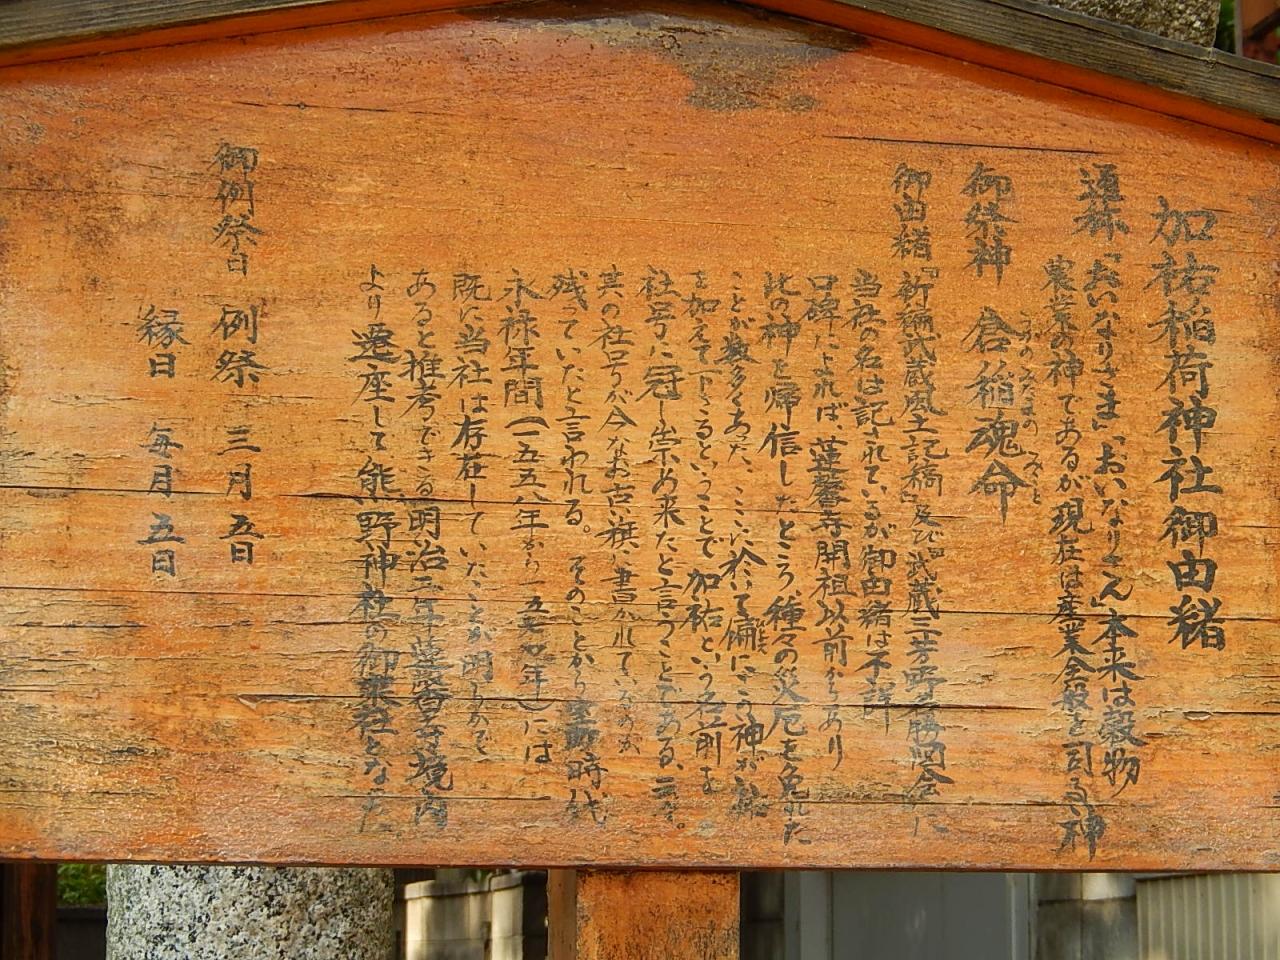 加祐稲荷神社御由緒
通称「おいなりさま」「おいなりさん」本来は穀物
農業の神であるが現在は産業全般を司る神
うかのみたまの みこと
御祭神 倉稲魂命
御由緒『新編武蔵風土記稿』及び『武蔵三芳野名勝図会』に
当社の名は記されているが御由緒は不詳
口碑によれば、蓮馨寺開祖以前からあり
此の神を帰信したところ種々の災厄を免れた
ことが数多くあった、ここに於いて偏にこの神が
を加えて下さるということで加祐という名社前を
社号に冠し崇め来たと言うことである、云々。
其の社号が今なお古い旗に書かれているのが
残っていたと言われる。そのことから室町時代
永禄年間(一五五八年から一五七〇年)には
既に当社は存在していたことが明らかで
あると推考できる明治二年蓮馨寺境内
より遷座して熊野神社の御末社となった。
御例祭日 例祭 三月五日
縁日 毎月五日